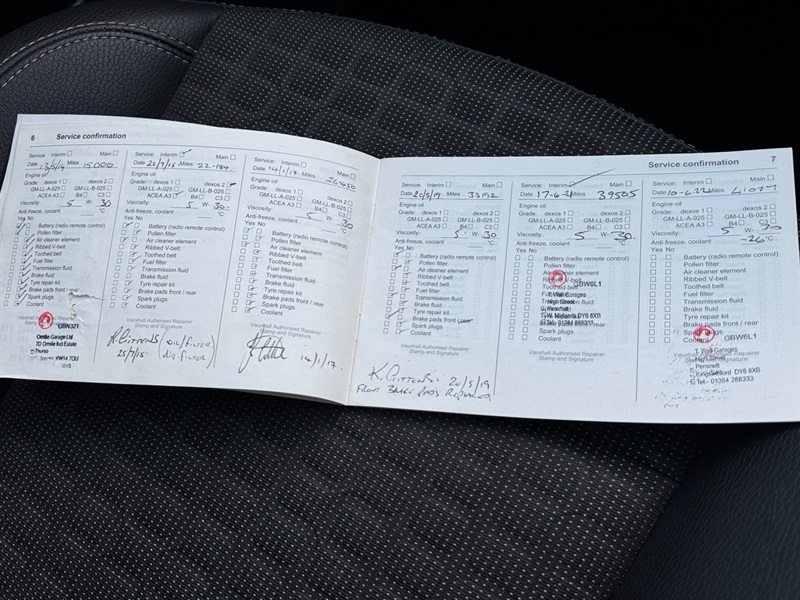 6 Service confirmation
Service: Interim Main
Date 13/5/14 Miles 15000
Engine oil
Grade: dexos 1 dexos 2
GM-LL-A-025 GM-LL-B-025
ACEA A3 B4 C3
Viscosity: 5 W- 30
Anti-freeze, coolant °C
Yes No
Battery (radio remote control)
Pollen filter
Air cleaner element
Ribbed V-belt
Toothed belt
Fuel filter
Transmission fluid
Brake fluid
Tyre repair kit
Brake pads front / rear
Spark plugs
Coolant
Vauxhall Authorised Repairer
Stamp and Signature
GBN321
7D Ormlie Ind Estate
Thurso
KW14 7QU
Service: Interim Main
Date 25/7/15 Miles 22-184
Engine oil
Grade: dexos 1 dexos 2
GM-LL-A-025 GM-LL-B-025
ACEA A3 B4 C3
Viscosity: 5 W- 30
Anti-freeze, coolant °C
Yes No
Battery (radio remote control)
Pollen filter
Air cleaner element
Ribbed V-belt
Toothed belt
Fuel filter
Transmission fluid
Brake fluid
Tyre repair kit
Brake pads front / rear
Spark plugs
Coolant
Vauxhall Authorised Repairer
Stamp and Signature
K. GITTENS OIL/FILTER
25/7/15 AIR FILTER
Service: Interim Main
Date 14/1/17 Miles 26450
Engine oil
Grade: dexos 1 dexos 2
GM-LL-A-025 GM-LL-B-025
ACEA A3 B4 C3
Viscosity: 5 W- 30
Anti-freeze, coolant °C
Yes No
Battery (radio remote control)
Pollen filter
Air cleaner element
Ribbed V-belt
Toothed belt
Fuel filter
Transmission fluid
Brake fluid
Tyre repair kit
Brake pads front / rear
Spark plugs
Coolant
Vauxhall Authorised Repairer
Stamp and Signature
14/1/17.
Service confirmation 7
Service: Interim Main
Date 20/5/19 Miles 33192
Engine oil
Grade: dexos 1 dexos 2
GM-LL-A-025 GM-LL-B-025
ACEA A3 B4 C3
Viscosity: 5 W- 30
Anti-freeze, coolant °C
Yes No
Battery (radio remote control)
Pollen filter
Air cleaner element
Ribbed V-belt
Toothed belt
Fuel filter
Transmission fluid
Brake fluid
Tyre repair kit
Brake pads front / rear
Spark plugs
Coolant
Vauxhall Authorised Repairer
Stamp and Signature
K. GITTENS. 20/5/19
FRONT BRAKE PADS REPLACED.
Service: Interim Main
Date 17-6-21 Miles 39505
Engine oil
Grade: dexos 1 dexos 2
GM-LL-A-025 GM-LL-B-025
ACEA A3 B4 C3
Viscosity: 5 W- 30
Anti-freeze, coolant °C
Yes No
Battery (radio remote control)
Pollen filter
Air cleaner element
Ribbed V-belt
GBW6L1
Toothed belt
T. Wall Garages
High Street
Pensnett
W. Midlands DY6 8XB
Tel:- 01384 288333
Vauxhall Authorised Repairer
Stamp and Signature
Service: Interim Main
Date 10-6-22 Miles 41077
Engine oil
Grade: dexos 1 dexos 2
GM-LL-A-025 GM-LL-B-025
ACEA A3 B4 C3
Viscosity: 5 W- 30
Anti-freeze, coolant -26 °C
Yes No
Battery (radio remote control)
Pollen filter
Air cleaner element
Ribbed V-belt
Toothed belt
Fuel filter
Transmission fluid
Brake fluid
Tyre repair kit
Brake pads front / rear
Spark plugs
Coolant
GBW6L1
T. Wall Garages
High Street
Pensnett
Kingswinford DY6 8XB
Tel:- 01384 288333